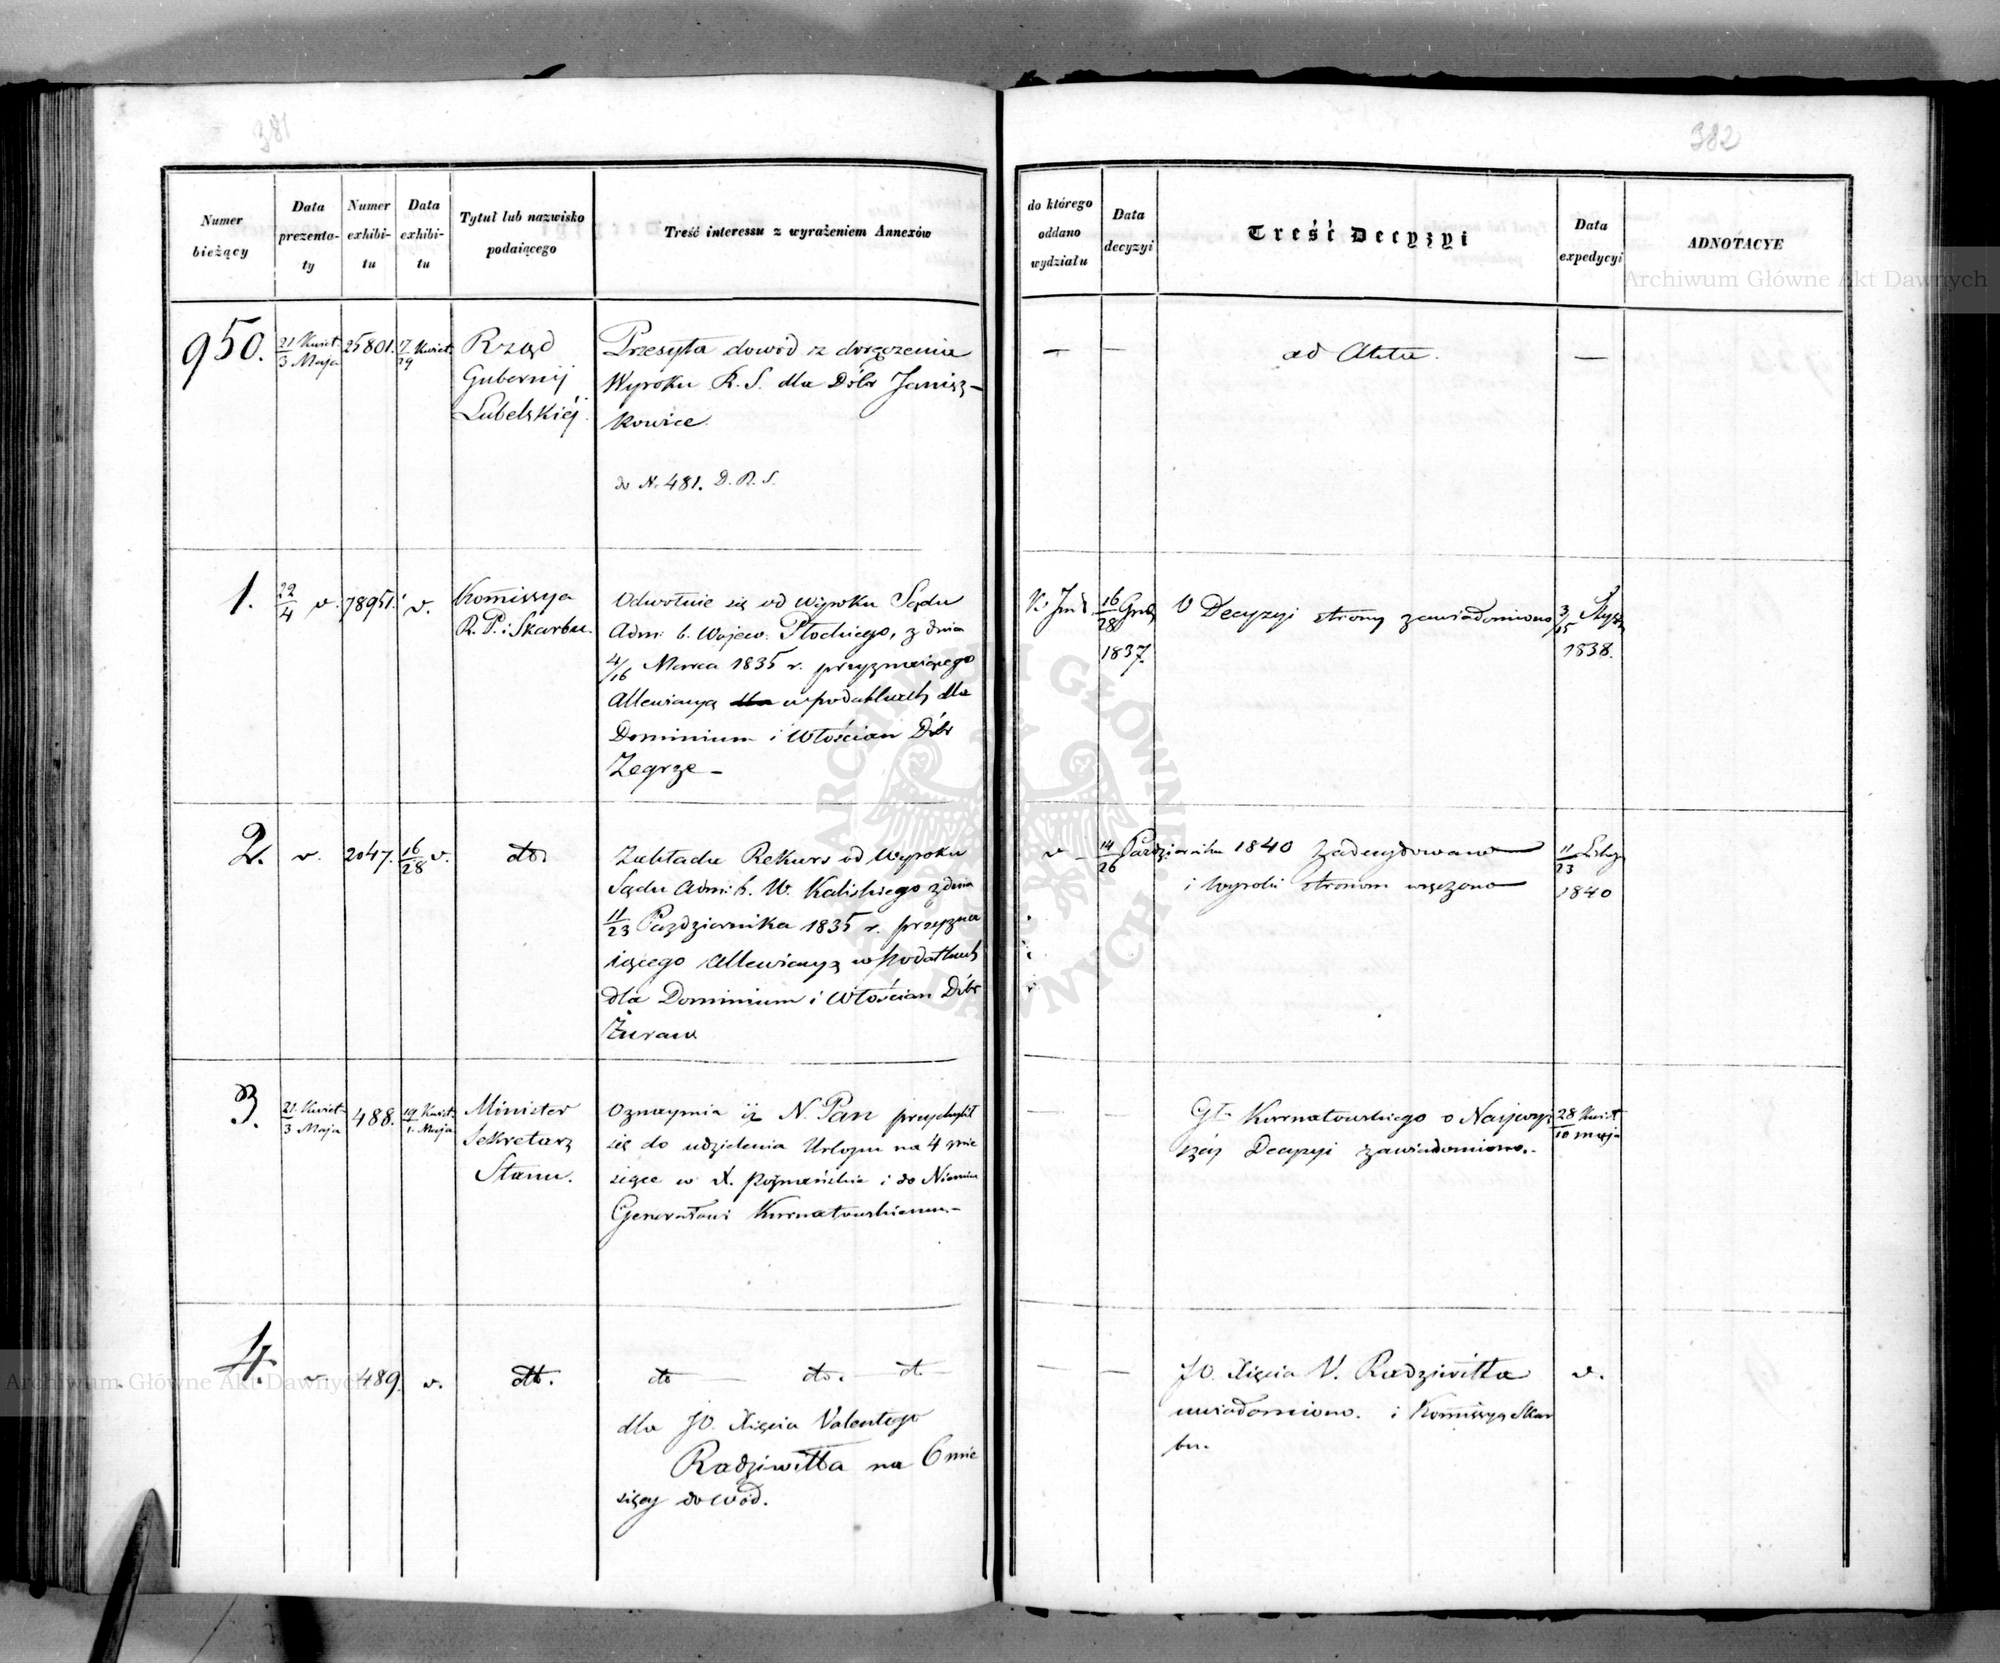 381
382
Numer
bieżący
Data
prezenta-
ty
Numer
exhibi-
tu
Data
exhibi-
tu
Tytuł lub nazwisko
podaiącego
Treść interessu z wyrażeniem Annexów
do którego
oddano
wydziału
Data
decyzyi
Treść Decyzyi
Data
expedycyi
ADNOTACYE
Archiwum Główne Akt Dawnych
950.
21 Kwiet.
3 Maja
25801.
17 Kwiet.
29
Rząd
Gubernij
Lubelskiéj
Przesyła dowód z doręczenia
Wyroku R. S. dla Dóbr Janisz-
kowice.
do N. 481. D. R. S.
—
—
ad Akta.
—
1.
22
4 v.
78951.
v.
Komissya
R. P. i Skarbu.
Odwołuie się od Wyroku Sądu
Adm: b. Wojew: Płockiego, z dnia
4/16 Marca 1835 r. przyznaiącego
Allewiacyą dla w podatkach dla
Dominium i Włościan Dóbr
Zegrze –
16 Grud.
28
1837.
O Decyzyi strony zawiadomiono
3/15 Stycz.
1838.
2.
v.
2047.
16
28 v.
dto.
Zakłada Rekurs od Wyroku
Sądu Adm: b. W. Kaliskiego z dnia
11
23 Października 1835 r. przyzna
iącego Allewiacyą w podatkach
dla Dominium i Włościan Dóbr
Żuraw
v.
14
26 Października 1840 zadecydowano
i Wyroki stronom wręczono
11 Listop.
23
1840
3.
21 Kwiet.
3 Maja
488.
19 Kwiet.
1. Maja
Minister
Sekretarz
Stanu.
Oznaymia iż N. Pan przychylił
się do udzielenia Urlopu na 4 mie
siące w X. Poznańskie i do Niemiec
Generałowi Kurnatowskiemu.–
Gł. Kurnatowskiego o Naywyż
széj Decyzyi zawiadomiono.–
28 Kwiet.
10 maja
4.
v.
489.
v.
dto.
dto — dto. — dt. —
dla JO. Xięcia Valentego
Radziwiłła na 6 mie
sięcy do wód.
—
—
JO. Xięcia V. Radziwiłła
uwiadomiono. i Komissyą Skar
bu.
v.
Archiwum Główne Akt Dawnych
ARCHIWUM GŁÓWNE AKT DAWNYCH